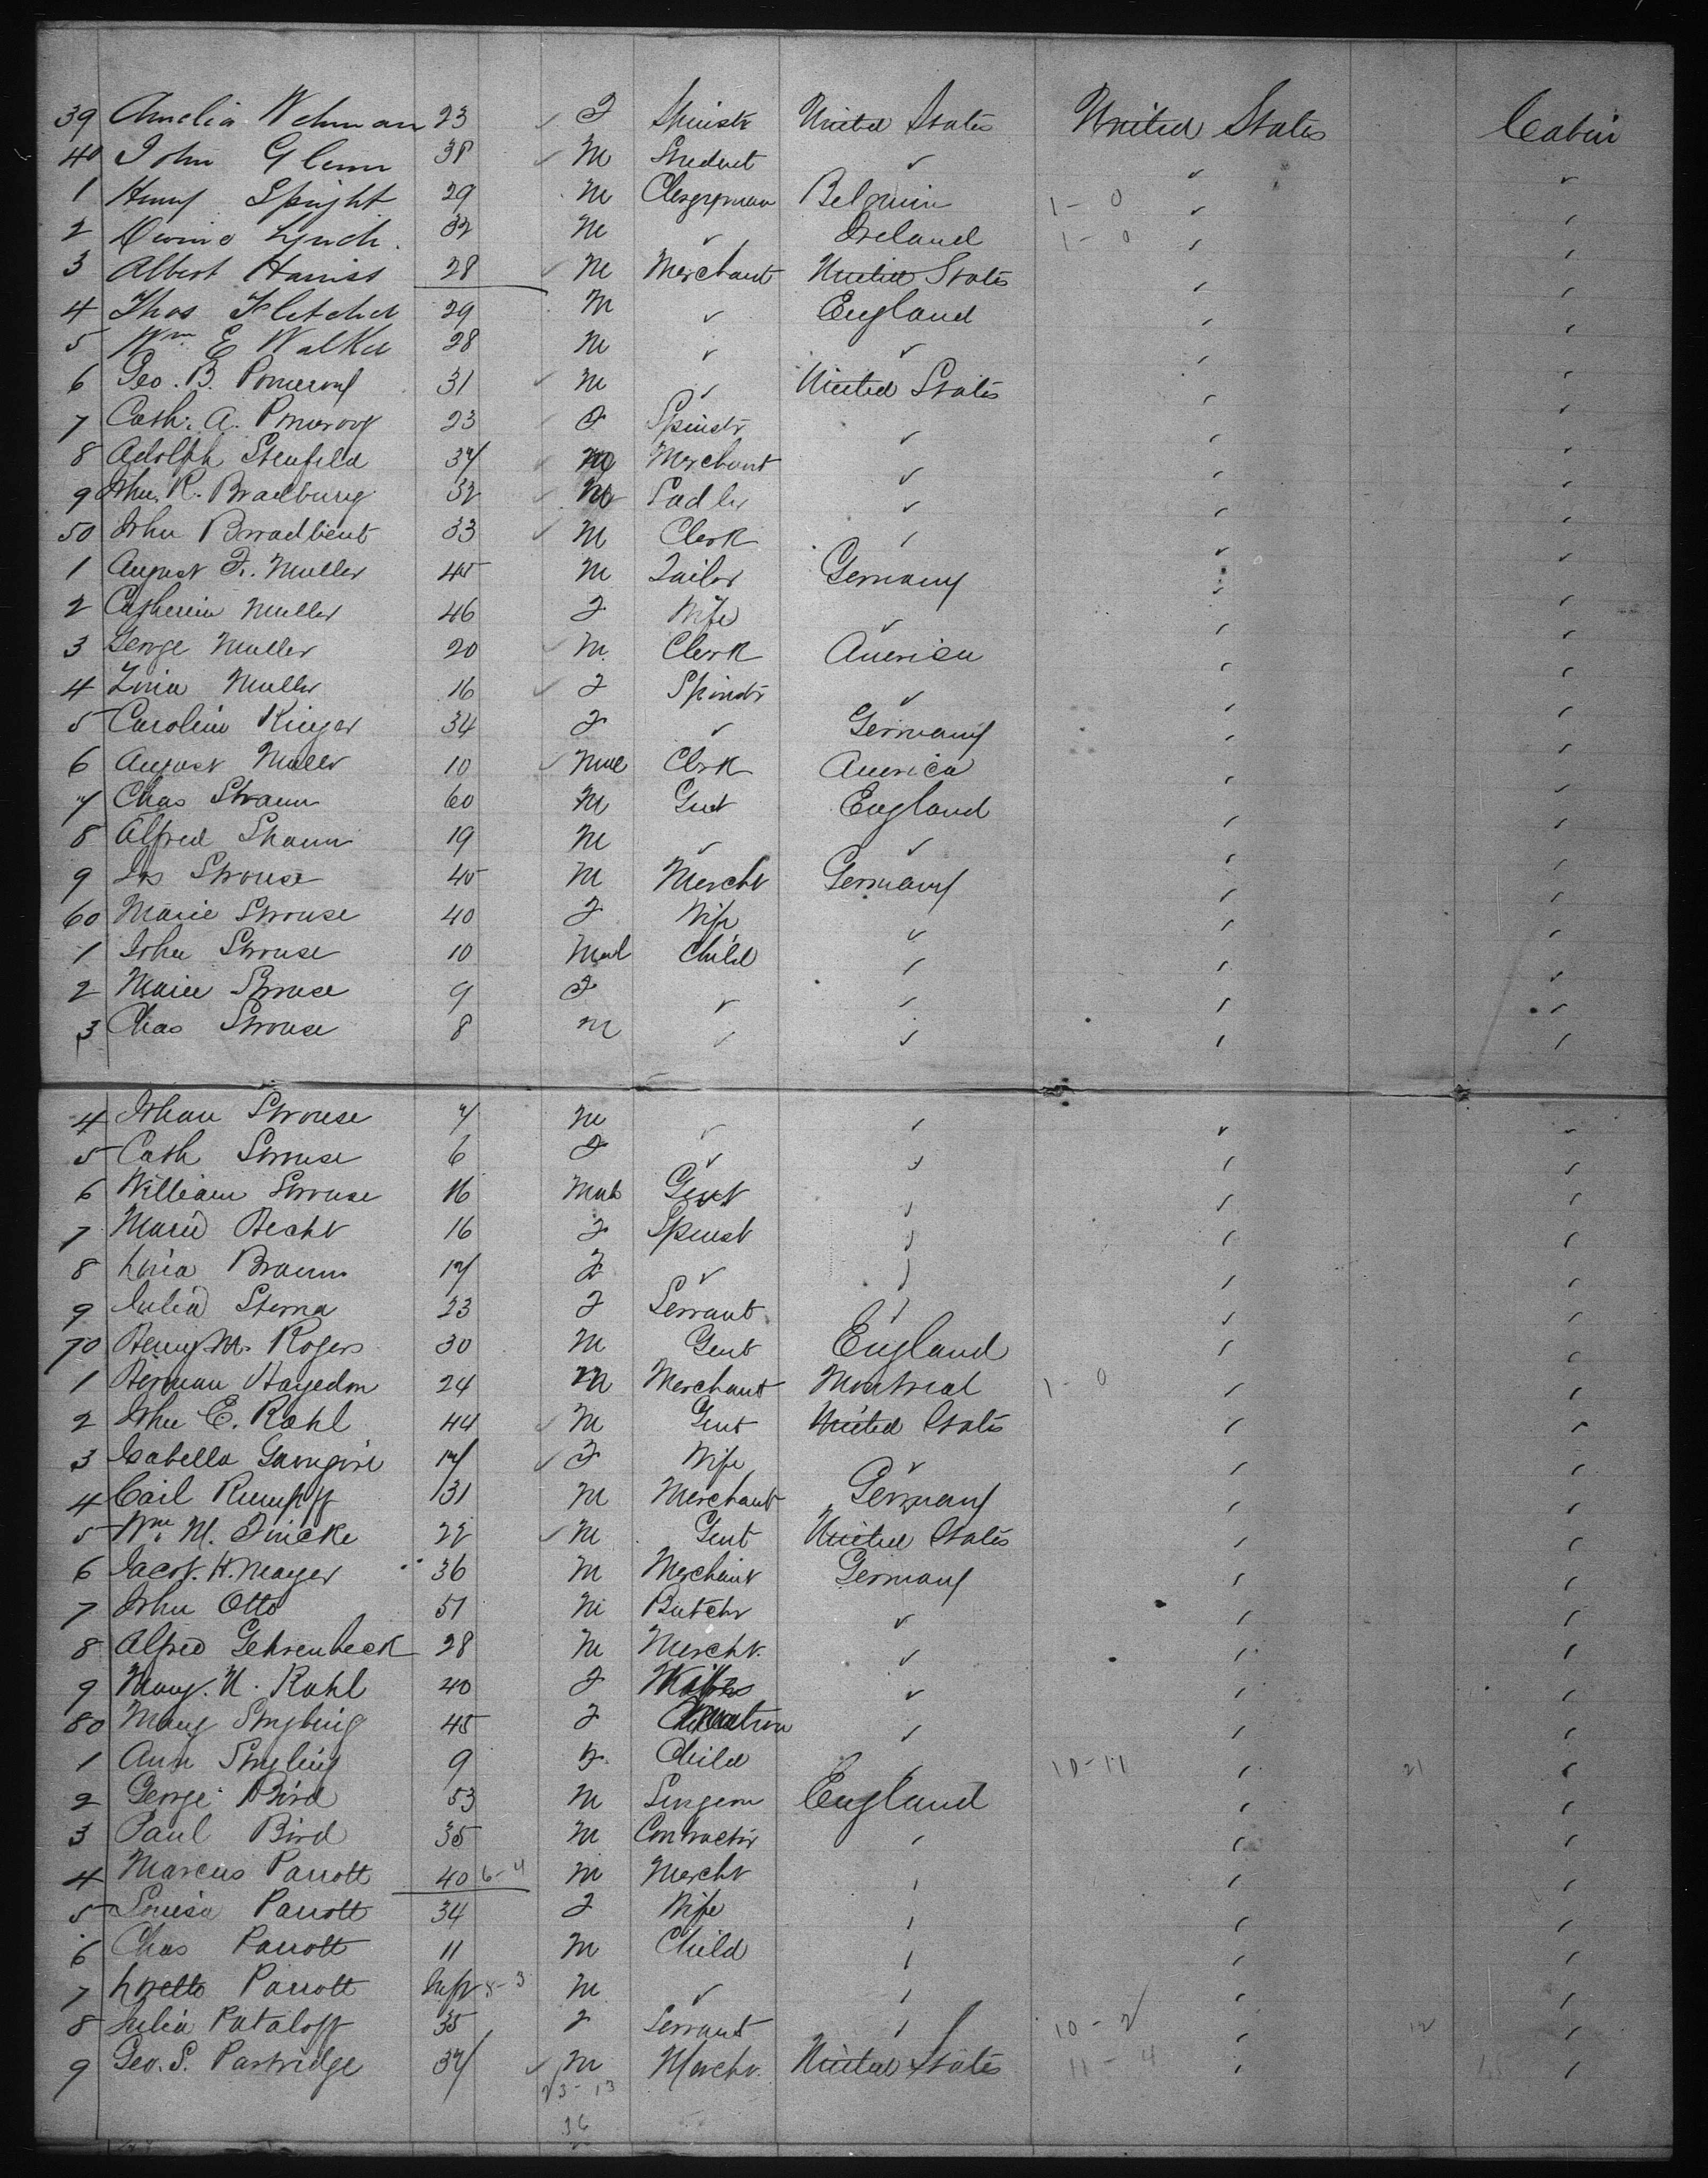 39 Amelia Wehman 23 ✓ F Spinstr United States United States Cabin
40 John Glenn 38 ✓ M Student ✓ ✓ ✓
1 Henry Spright 29 M Clergyman Belgium 1-0 ✓ ✓
2 Lynch 32 M ✓ Ireland 1-0 ✓ ✓
3 Albert Harriss 28 ✓ M Merchant United States ✓ ✓
4 Thos Fletcher 29 M ✓ England ✓ ✓
5 Wm E Walker 28 M ✓ ✓ ✓ ✓
6 Geo. B. Pomeroy 31 ✓ M ✓ United States ✓ ✓
7 Cath. A. Pmeroy 23 ✓ F Spinstr ✓ ✓ ✓
8 Adolph Stenfeld 37 ✓ M Merchant ✓ ✓ ✓
9 John. R. Bradbury 32 ✓ M Sadler ✓ ✓ ✓
50 John Broadbent 33 ✓ M Clerk ✓ ✓ ✓
1 August F. Muller 45 M Tailor Germany ✓ ✓
2 Catherine Muller 46 F Wife ✓ ✓ ✓
3 George Muller 20 ✓ M Clerk America ✓ ✓
4 Lina Muller 16 ✓ F Spinstr ✓ ✓ ✓
5 Carolin 34 F ✓ Germany ✓ ✓
6 August Muller 10 ✓ Male Clerk America ✓ ✓
7 Chas 60 M Gent England ✓ ✓
8 Alfred 19 M ✓ ✓ ✓ ✓
9 Jos Strouse 45 M Mercht Germany ✓ ✓
60 Marie Strouse 40 F Wife ✓ ✓ ✓
1 John Strouse 10 Mal Child ✓ ✓ ✓
2 Marie Strouse 9 F ✓ ✓ ✓ ✓
3 Chas Strouse 8 M ✓ ✓ ✓ ✓
4 Johan Strouse 7 M ✓ ✓ ✓ ✓
5 Cath Strouse 6 F ✓ ✓ ✓ ✓
6 William Strouse 16 Male Gent ✓ ✓ ✓
7 Marie Hecht 16 F Spinst ✓ ✓ ✓
8 Lina Braun 17 F ✓ ✓ ✓ ✓
9 Julia Sterna 23 F Servant ✓ ✓ ✓
70 Henry M. Rogers 30 M Gent England ✓ ✓
1 Herman Hagedon 24 M Merchant Montreal 1-0 ✓ ✓
2 John E. Kahl 44 ✓ M Gent United States ✓ ✓
3 Isabella 17 ✓ F Wife ✓ ✓ ✓
4 Carl Rumpff 31 M Merchant Germany ✓ ✓
5 Wm. M. Fincke 22 ✓ M Gent United States ✓ ✓
6 Jacob. H. Mayer 36 M Merchant Germany ✓ ✓
7 John Otto 51 M Butchr ✓ ✓ ✓
8 Alfred Gehrenbeck 28 M Mercht. ✓ ✓ ✓
9 Mary. N. Kahl 40 F ✓ ✓ ✓
80 Mary 45 F Matron ✓ ✓ ✓
1 Ann 9 F Child ✓ 10-11 ✓ 21 ✓
2 George Bird 53 M Surgeon England ✓ ✓
3 Paul Bird 35 M Contractor ✓ ✓ ✓
4 Marcus Parrott 40 6-4 M Mercht ✓ ✓ ✓
5 Louisa Parrott 34 F Wife ✓ ✓ ✓
6 Chas Parrott 11 M Child ✓ ✓ ✓
7 Parrott Inft 8-3 M ✓ ✓ ✓ ✓
8 Julia Pataloff 35 F Servant ✓ 10-2 ✓ 12 ✓
9 Geo. S. Partridge 37 ✓ M Mercht. United States 11-4 ✓ ✓
23-13
36